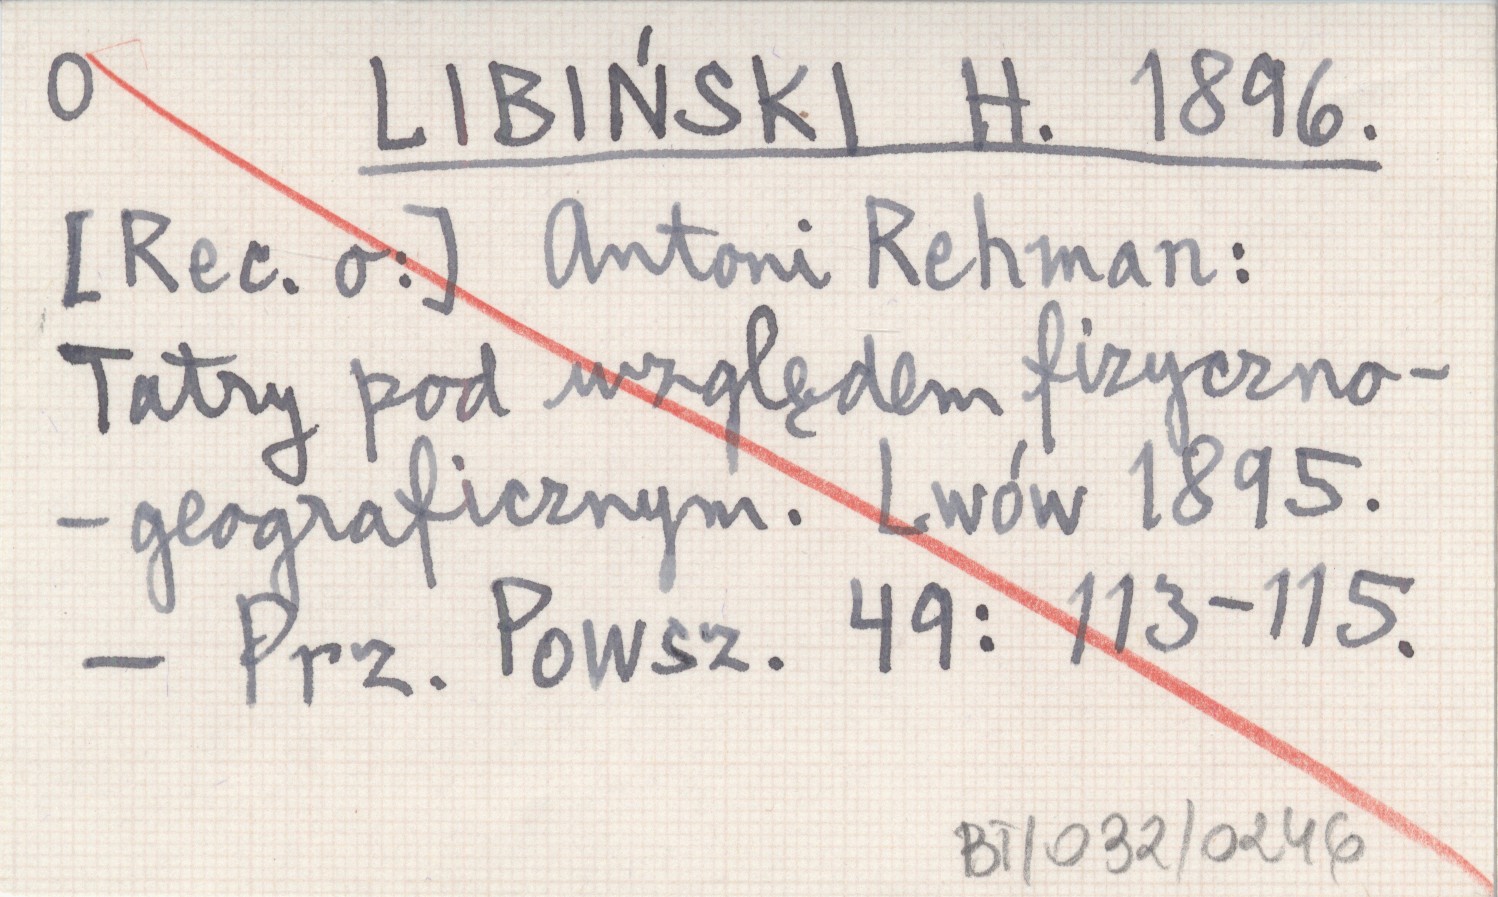 O LIBIŃSKI H. 1896.
[Rec. o:] Antoni Rehman:
Tatry pod względem fizyczno-
-geograficznym. Lwów 1895.
— Prz. Powsz. 49: 113-115.
BT/032/0246